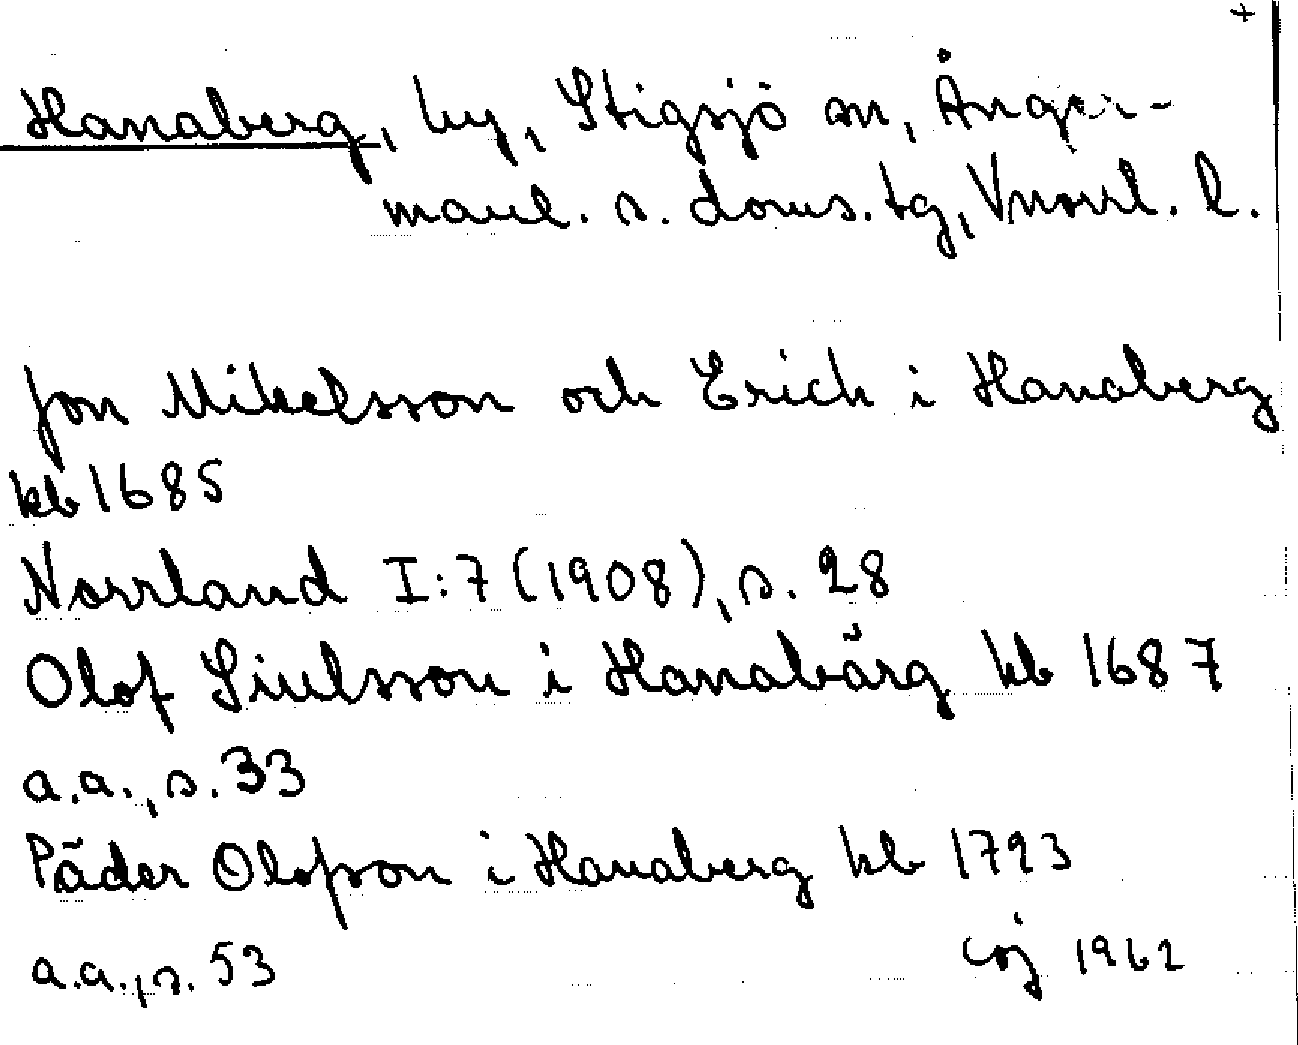 +
Hanaberg, by, Stigsjö sn, Ånger-
manl. s. doms. tg, Vnorrl. l.
Jon Mikelsson och Erich i Hanaberg
kb 1685
Norrland I:7 (1908), s. 28
Olof Siulsson i Hanabärg kb 1687
a.a., s. 33
Päder Olofson i Hanaberg kb 1723
a.a., s. 53
1962